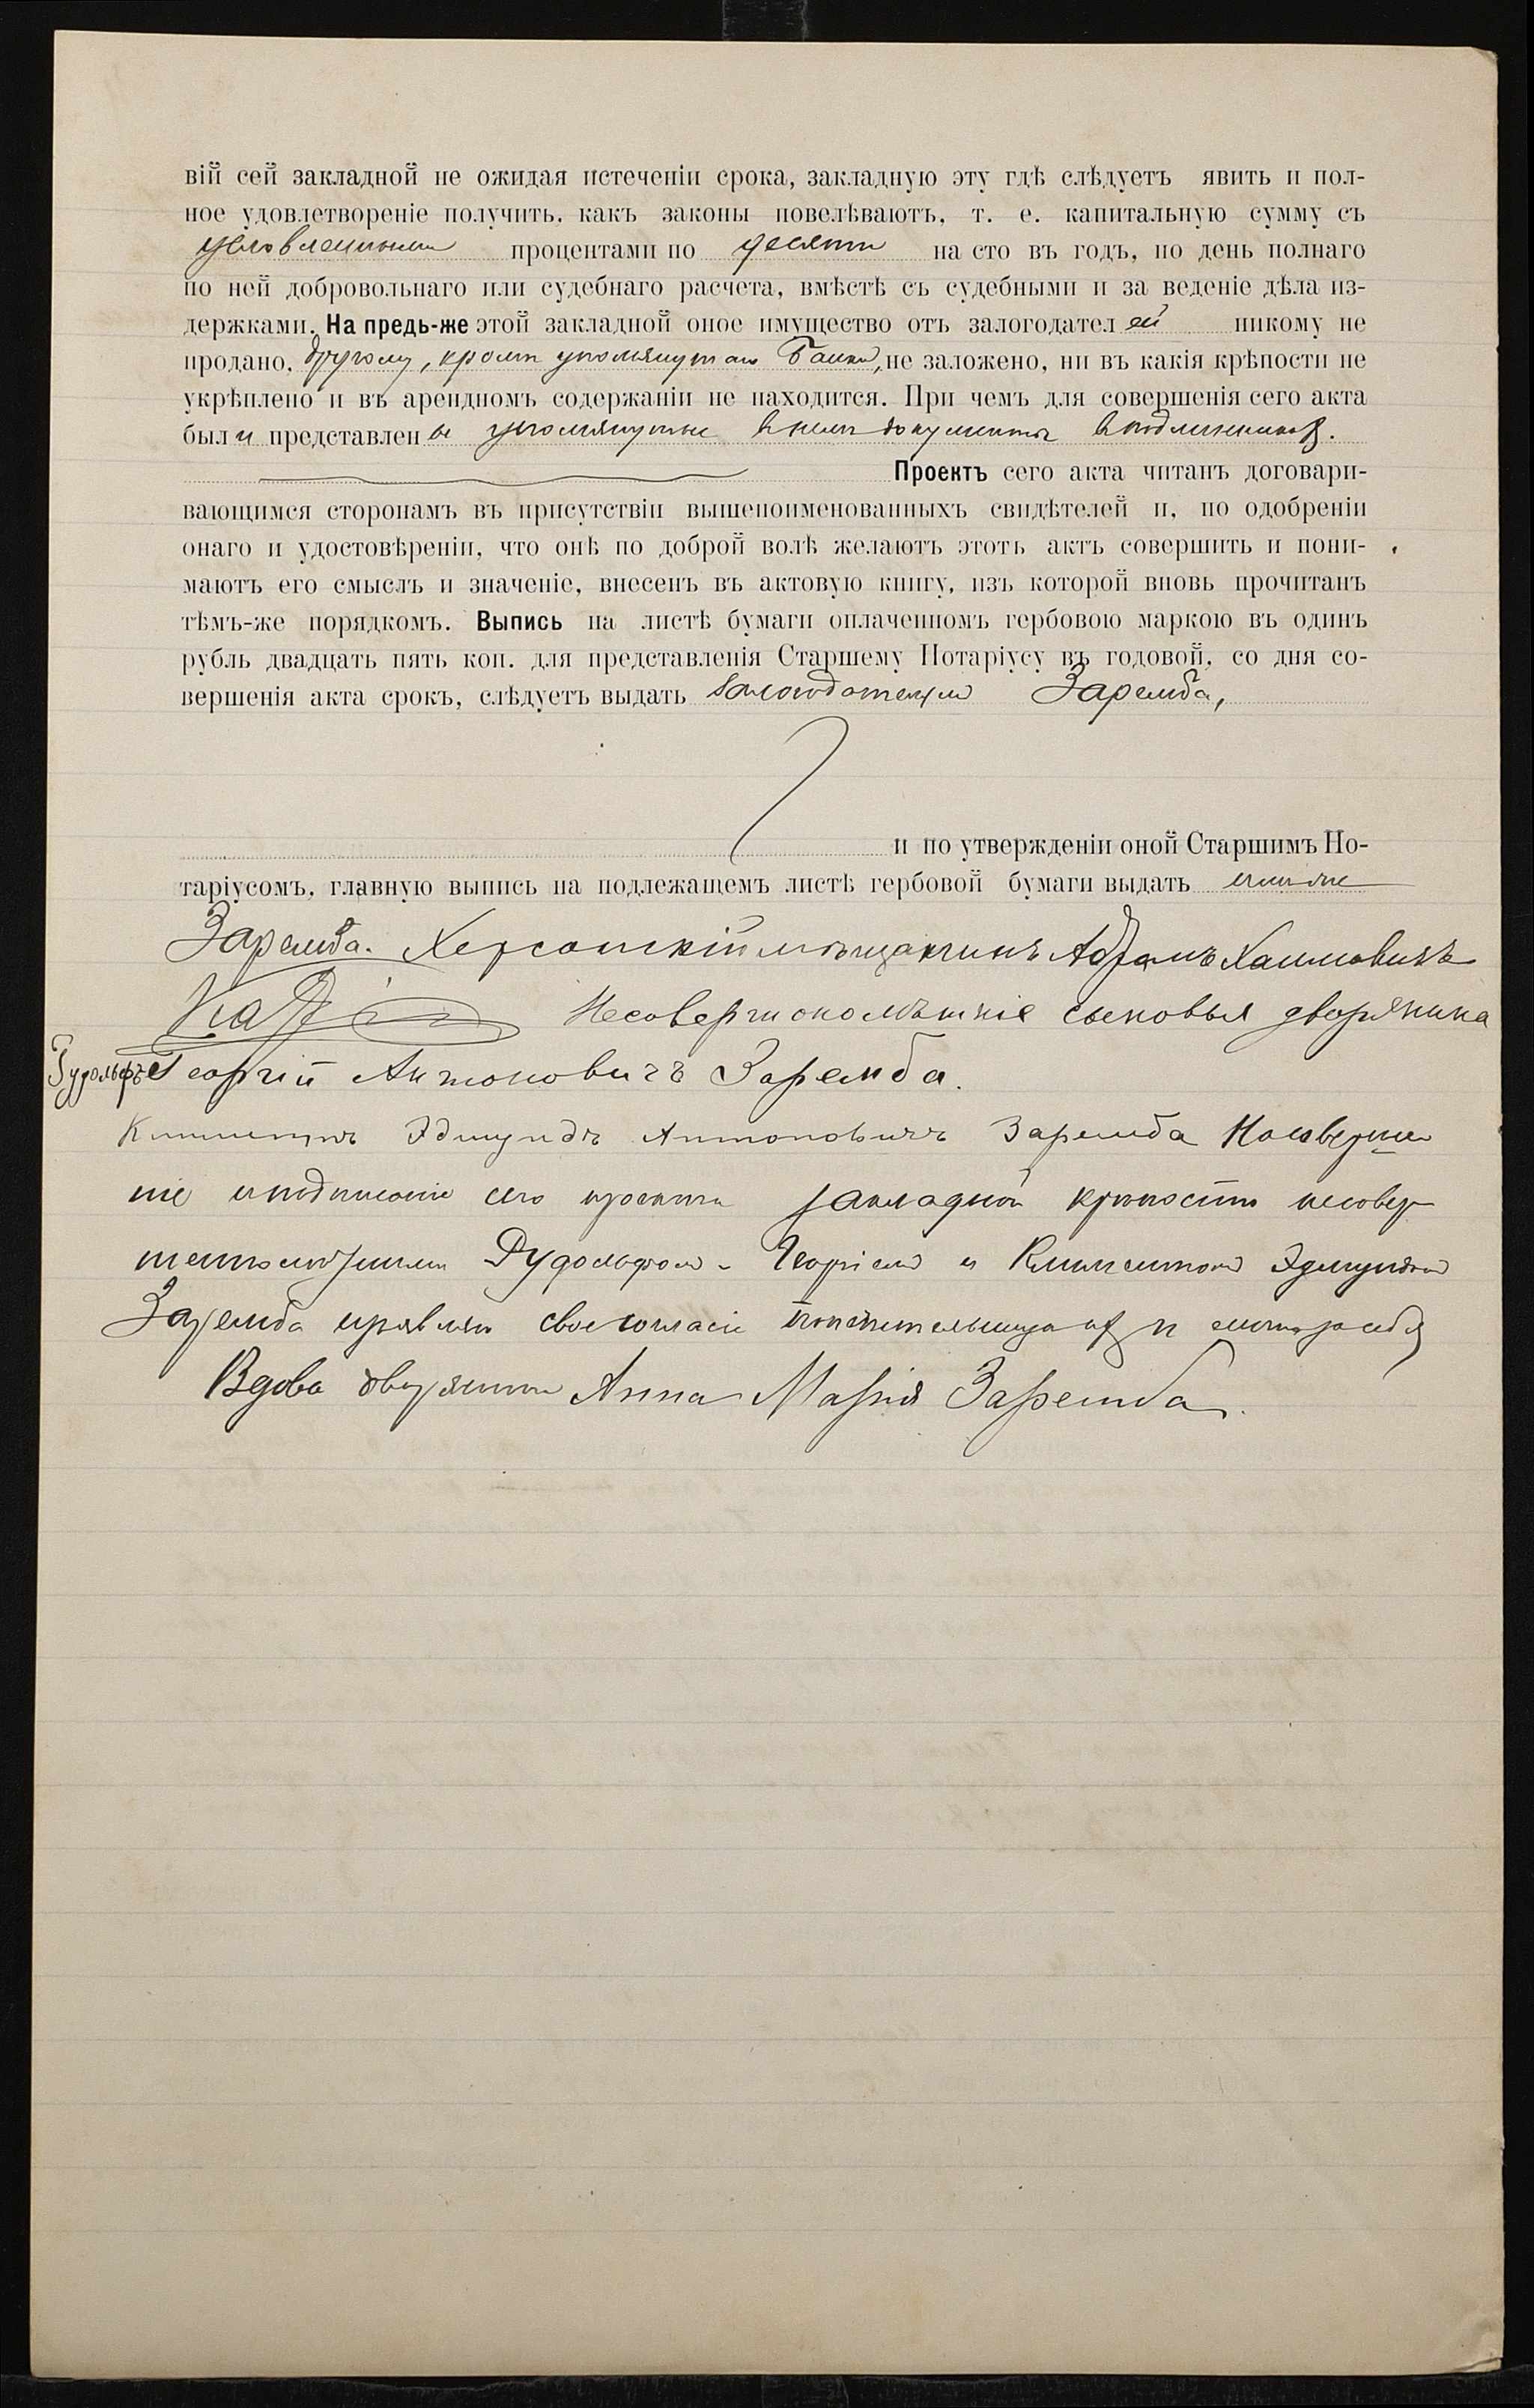 вій сей закладной не ожидая истеченіи срока, закладную эту гдѣ слѣдуетъ явить и пол-
ное удовлетвореніе получить, какъ законы повелѣваютъ, т. е. капитальную сумму съ
условленными процентами по десяти на сто въ годъ, по день полнаго
по ней добровольнаго или судебнаго расчета, вмѣстѣ съ судебными и за веденіе дѣла из-
держками. На предь-же этой закладной оное имущество отъ залогодателей никому не
продано, другому, кромѣ упомянутаго Банка, не заложено, ни въ какія крѣпости не
укрѣплено и въ арендномъ содержаніи не находится. При чемъ для совершенія сего акта
были представлены упомянутые в немъ документы в подлинникахъ.
Проектъ сего акта читанъ договари-
вающимся сторонамъ въ присутствіи вышепоименованныхъ свидѣтелей и, по одобреніи
онаго и удостовѣреніи, что онѣ по доброй волѣ желаютъ этотъ актъ совершить и пони-
маютъ его смыслъ и значеніе, внесенъ въ актовую книгу, изъ которой вновь прочитанъ
тѣмъ-же порядкомъ. Выпись на листѣ бумаги оплаченномъ гербовою маркою въ одинъ
рубль двадцать пять коп. для представленія Старшему Нотаріусу въ годовой, со дня со-
вершенія акта срокъ, слѣдуетъ выдать Заремба,
и по утвержденіи оной Старшимъ Но-
таріусомъ, главную выпись на подлежащемъ листѣ гербовой бумаги выдать
Заремба. Херсонскій мѣщанинъ Абрамъ Хаимовичъ
Несовершонолѣтніе сыновья дворянина
Рудольфъ Георгій Антоновичъ Заремба.
Климентъ Эдмундъ Антоновичъ Заремба На соверше
ніе и подписаніе сего проекта закладной крѣпости несовер
шеннолѣтними Рудольфом-Георгіем и Климентом Эдмундом
Заремба изъявляю свое согласіе попечительница их и мать
Вдова дворянина Анна Марія Заремба.